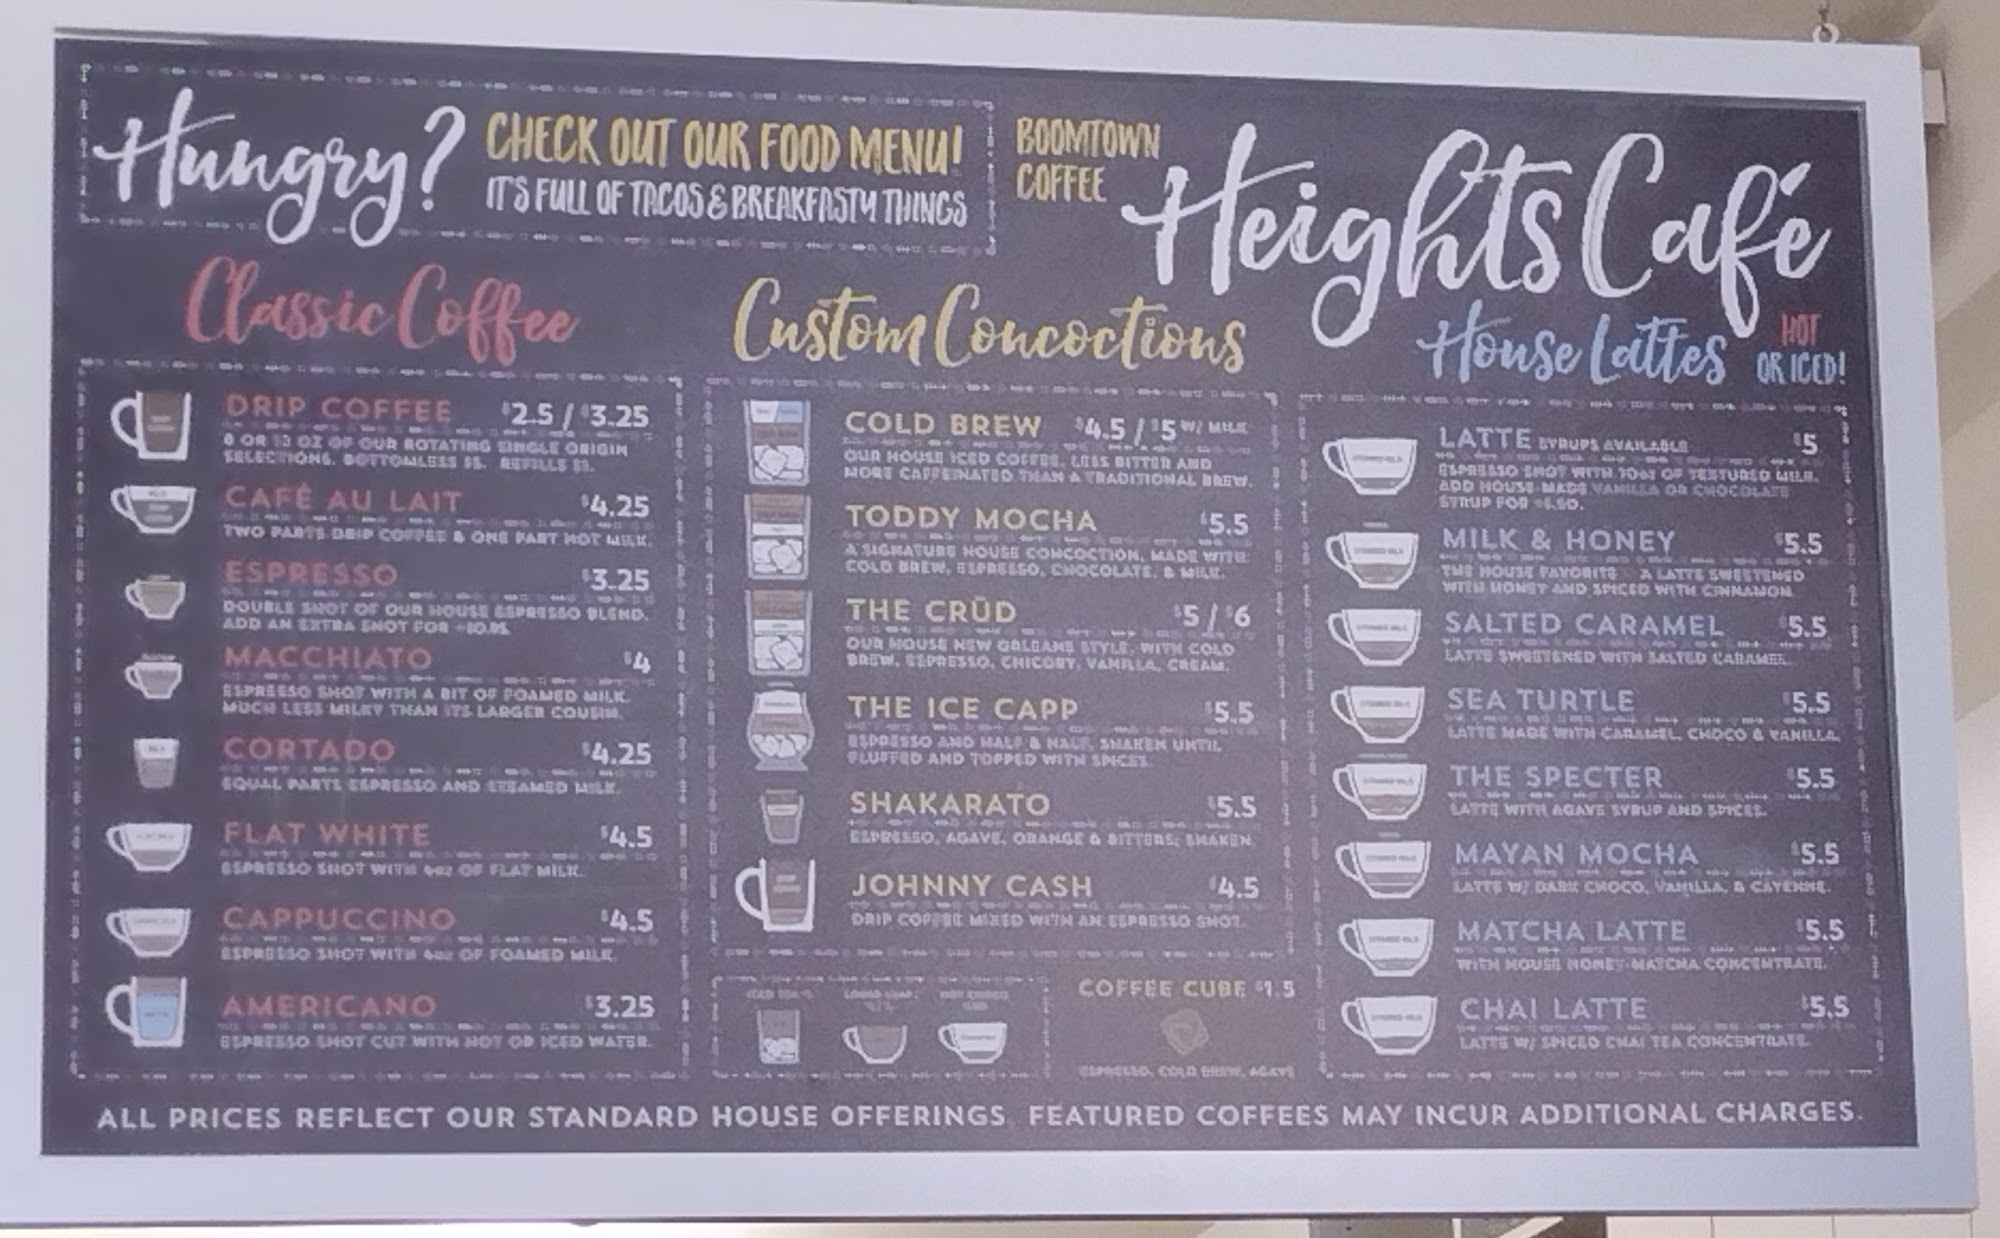 Hungry?
CHECK OUT OUR FOOD MENU!
IT'S FULL OF TACOS & BREAKFASTY THINGS
BOOMTOWN
COFFEE
Heights Café
Classic Coffee
DRIP COFFEE $2.5 / $3.25
8 OR 12 OZ OF OUR ROTATING SINGLE ORIGIN
SELECTIONS. BOTTOMLESS $5. REFILLS $1.
CAFÉ AU LAIT $4.25
TWO PARTS DRIP COFFEE & ONE PART HOT MILK.
ESPRESSO $3.25
DOUBLE SHOT OF OUR HOUSE ESPRESSO BLEND.
ADD AN EXTRA SHOT FOR
MACCHIATO $4
ESPRESSO SHOT WITH A BIT OF FOAMED MILK.
MUCH LESS MILKY THAN ITS LARGER COUSIN.
CORTADO $4.25
EQUAL PARTS ESPRESSO AND STEAMED MILK.
FLAT WHITE $4.5
ESPRESSO SHOT WITH 6oz OF FLAT MILK.
CAPPUCCINO $4.5
ESPRESSO SHOT WITH 6oz OF FOAMED MILK.
AMERICANO $3.25
ESPRESSO SHOT CUT WITH HOT OR ICED WATER.
Custom Concoctions
COLD BREW $4.5 / $5 W/ MILK
OUR HOUSE ICED COFFEE, LESS BITTER AND
MORE CAFFEINATED THAN A TRADITIONAL BREW.
TODDY MOCHA $5.5
A SIGNATURE HOUSE CONCOCTION, MADE WITH
COLD BREW, ESPRESSO, CHOCOLATE, & MILK.
THE CRŪD $5 / $6
OUR HOUSE NEW ORLEANS STYLE, WITH COLD
BREW, ESPRESSO, CHICORY, VANILLA, CREAM.
THE ICE CAPP $5.5
ESPRESSO AND HALF & HALF, SHAKEN UNTIL
FLUFFED AND TOPPED WITH SPICES.
SHAKARATO $5.5
ESPRESSO, AGAVE, ORANGE & BITTERS; SHAKEN.
JOHNNY CASH $4.5
DRIP COFFEE MIXED WITH AN ESPRESSO SHOT.
COFFEE CUBE $1.5
ESPRESSO, COLD BREW, AGAVE
House Lattes
HOT
OR ICED!
LATTE SYRUPS AVAILABLE $5
ESPRESSO SHOT WITH 10oz OF TEXTURED MILK.
ADD HOUSE-MADE VANILLA OR CHOCOLATE
SYRUP FOR
MILK & HONEY $5.5
THE HOUSE FAVORITE A LATTE SWEETENED
WITH HONEY AND SPICED WITH CINNAMON.
SALTED CARAMEL $5.5
LATTE SWEETENED WITH SALTED CARAMEL.
SEA TURTLE $5.5
LATTE MADE WITH CARAMEL, CHOCO & VANILLA.
THE SPECTER $5.5
LATTE WITH AGAVE SYRUP AND SPICES.
MAYAN MOCHA $5.5
LATTE W/ DARK CHOCO, VANILLA, & CAYENNE.
MATCHA LATTE $5.5
WITH HOUSE HONEY-MATCHA CONCENTRATE.
CHAI LATTE $5.5
LATTE W/ SPICED CHAI TEA CONCENTRATE.
ALL PRICES REFLECT OUR STANDARD HOUSE OFFERINGS. FEATURED COFFEES MAY INCUR ADDITIONAL CHARGES.